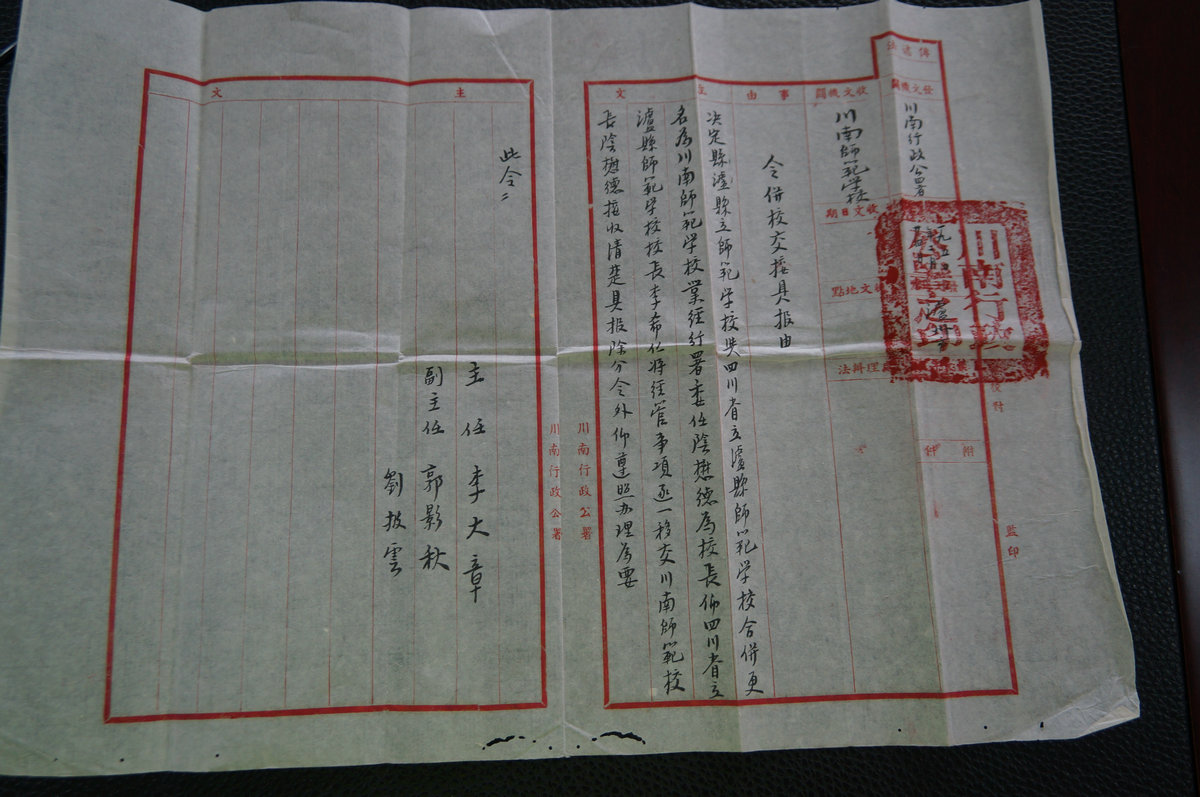 傳遞法
發文機關
川南行政公署
附件
校對
監印
收文機關
川南師範学校
收文日期
收文地點
理辦法
川南行政
之印
事由
令併校交接具报由
主文
决定縣瀘縣立師範学校與四川省立瀘縣師範学校合併更
名為川南師範学校業經行署委任陰懋德為校長仰四川省立
瀘縣師範学校校長李希仁将經管事項逐一移交川南師範校
長陰懋德接收清楚具报除分令外仰遵照办理為要
川南行政公署
川南行政公署
主文
此令
主任李大章
副主任郭影秋
劉披雲